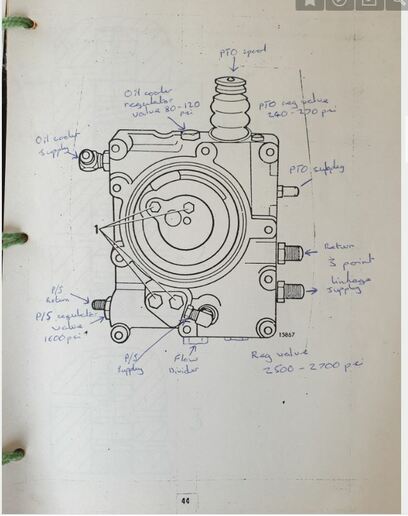 PTO spool
Oil cooler
regulator
valve 80-120
psi
PTO reg valve
240-270 psi
Oil cooler
supply
PTO supply
1
Return
3 point
linkage
supply
P/S
Return
P/S regulator
valve
1600 psi
P/S
supply
Flow
Divider
15867
Reg valve
2500-2700 psi
44